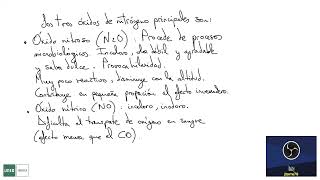 Los tres óxidos de nitrógeno principales son:
• Óxido nitroso (N2O): Procede de procesos
microbiológicos. Incoloro, olor débil y agradable
y sabor dulce. Provoca hilaridad.
Muy poco reactivo, disminuye con la altitud.
Contribuye en pequeña proporción al efecto invernadero.
• Óxido nítrico (NO): incoloro, inodoro.
Dificulta el transporte de oxígeno en sangre
(efecto menor que el CO).
UNED